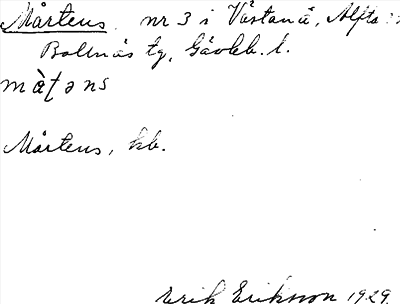 Mårtens nr 3 i Västanå, Alfta
Bollnäs tg, Gävleb. l.
Mårtens, kb.
Erik Eriksson 1929.